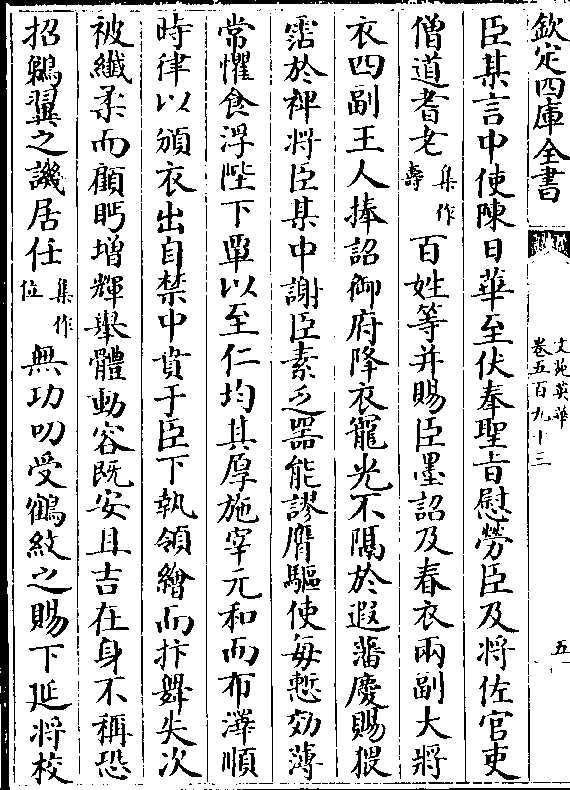 欽定四庫全書
文苑英華
卷五百九十三
五
臣某言中使陳日華至伏奉聖旨慰勞臣及將佐官吏
僧道耆老集作壽百姓等并賜臣墨詔及春衣兩副大將
衣四副王人捧詔御府降衣寵光不隔於遐藩慶賜猥
霑於裨將臣某中謝臣素乏器能謬膺驅使每慙効薄
常懼食浮陛下單以至仁均其厚施宰元和而布澤順
時律以頒衣出自禁中賁于臣下執領繒而抃舞失次
被纖柔而顧眄增輝舉體動容既安且吉在身不稱恐
招鵜翼之譏居任集作位無功叨受鶴紋之賜下延將校